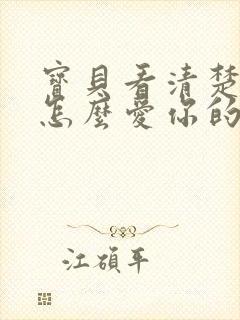 寶貝看清楚
怎麼愛你的
江碩平